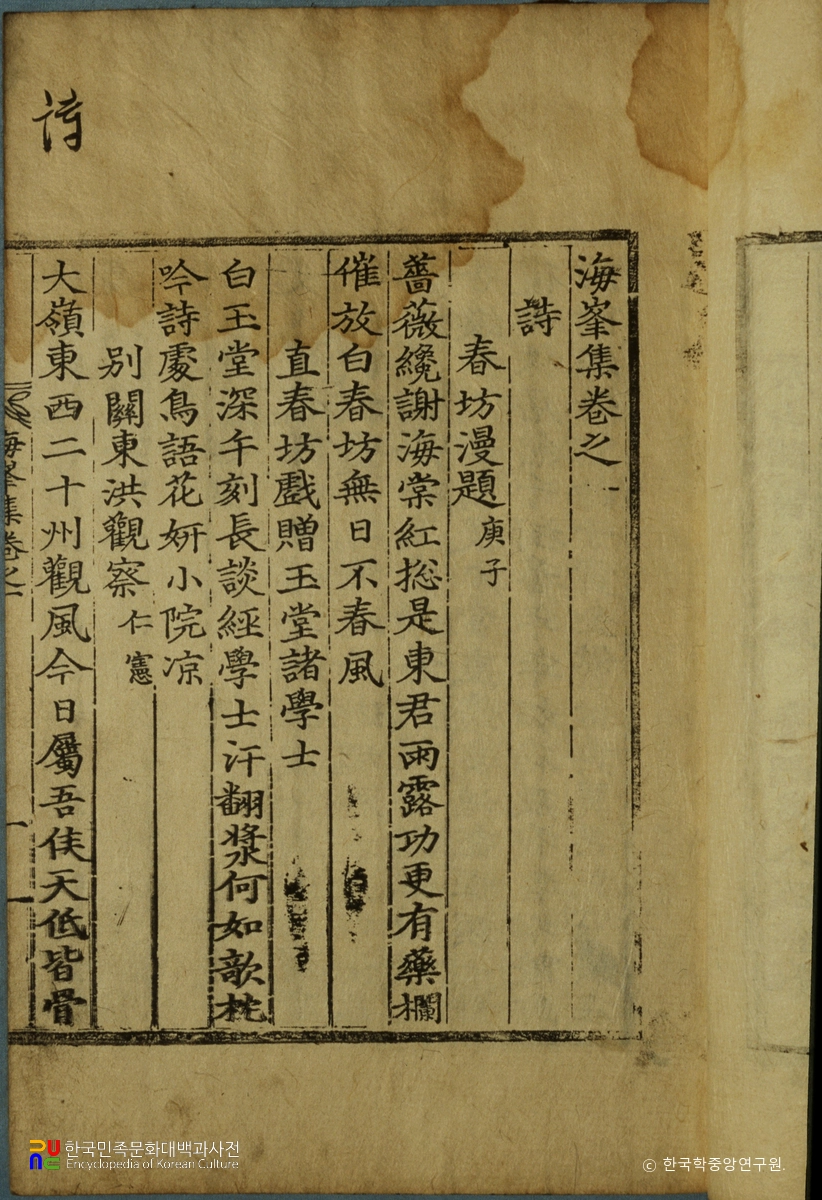 詩
海峯集卷之一
詩
春坊漫題 庚子
薔薇纔謝海棠紅揔是東君雨露功更有藥欄
催放白春坊無日不春風
直春坊戲贈玉堂諸學士
白玉堂深午刻長談經學士汗翻漿何如欹枕
吟詩處鳥語花姸小院凉
別關東洪觀察 仁憲
大嶺東西二十州觀風今日屬吾侯天低皆骨
海峯集卷之一
한국민족문화대백과사전
Encyclopedia of Korean Culture
© 한국학중앙연구원.